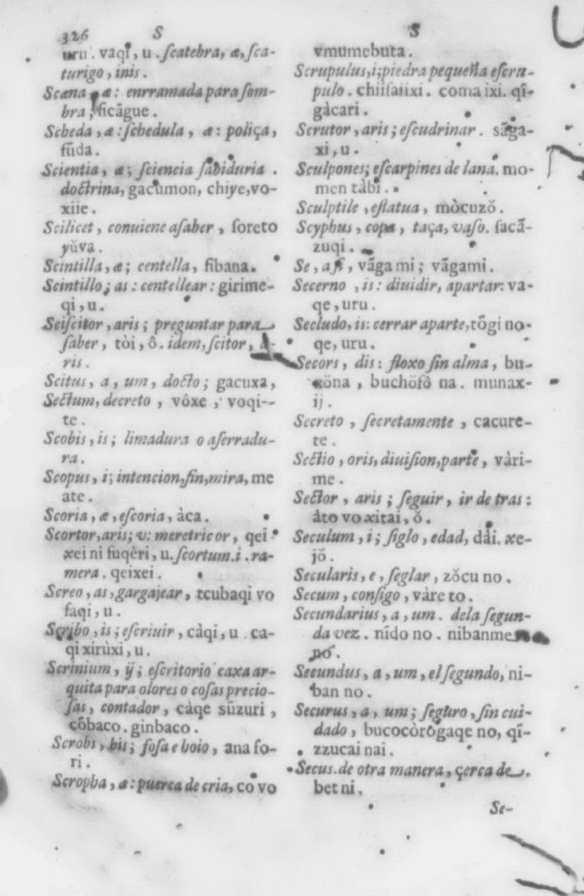 326 S
uru. vaqi, u. ſcatebra, æ, ſca-
turigo, inis.
Scæna, æ: enrramada para ſom-
bra; ficāgue.
Scheda, æ: ſchedula, æ: poliça,
fūda.
Scientia, æ; ſciencia ſabiduria.
doctrina, gacumon, chiye, vo-
xiie.
Scilicet, conuiene aſaber, ſoreto
yŭva.
Scintilla, æ; centella, fibana.
Scintillo; as: centellear: girime-
qi, u.
Sciſcitor, aris; preguntar para
ſaber, tòi, ô. idem, ſcitor, a-
ris.
Scitus, a, um, docto; gacuxa,
Sectum, decreto, vôxe, voqi-
te.
Scobis, is; limadura o aſerradu-
ra.
Scopus, i; intencion, fin, mira, me
ate.
Scoria, æ, eſcoria, àca.
Scortor, aris; v: meretricor, qei
xei ni fuqèri, u. ſcortum. i. ra-
mera. qeixei.
Screo, as, gargajear, tcubaqi vo
faqi, u.
Scribo, is; eſcriuir, càqi, u. ca-
qi xirùxi, u.
Scrinium, ij; eſcritorio caxa ar-
quita para olores o coſas precio-
ſas, contador, càqe sūzuri,
còbaco. ginbaco.
Scrobs, bis; foſa e hoio, ana fo-
ri.
Scropha, æ: puerca de cria, co vo
S
vmumebuta.
Scrupulus, i; piedra pequeña eſcru-
pulo. chiiſaiixi. coma ixi. qi-
gàcari.
Scrutor, aris; eſcudrinar. sāga-
xi, u.
Sculpones; eſcarpines de lana. mo-
men tàbi.
Sculptile, eſtatua, mòcuzŏ.
Scyphus, copa, taça, vaſo. ſacā-
zuqi.
Se, a ſi, vāga mi; vāgami.
Secerno, is: diuidir, apartar: va-
qe, uru.
Secludo, is: cerrar aparte, tōgi no-
qe, uru.
Secors, dis: floxo ſin alma, bu-
cōna, buchŏfŏ na. munax-
ij.
Secreto, ſecretamente, cacure-
te.
Sectio, oris, diuiſion, parte, vàri-
me.
Sector, aris; ſeguir, ir de tras:
àto vo xitai, ŏ.
Seculum, i; ſiglo, edad, dâi. xe-
jŏ.
Secularis, e, ſeglar, zŏcu no.
Secum, conſigo, vàre to.
Secundarius, a, um. dela ſegun-
da vez. nido no. nibanme
no.
Secundus, a, um, el ſegundo, ni-
ban no.
Securus, a, um; ſeguro, ſin cui-
dado, bucocòrŏgaqe no, qī-
zzucai nai.
Secus. de otra manera, çerca de.
bet ni.
Se-